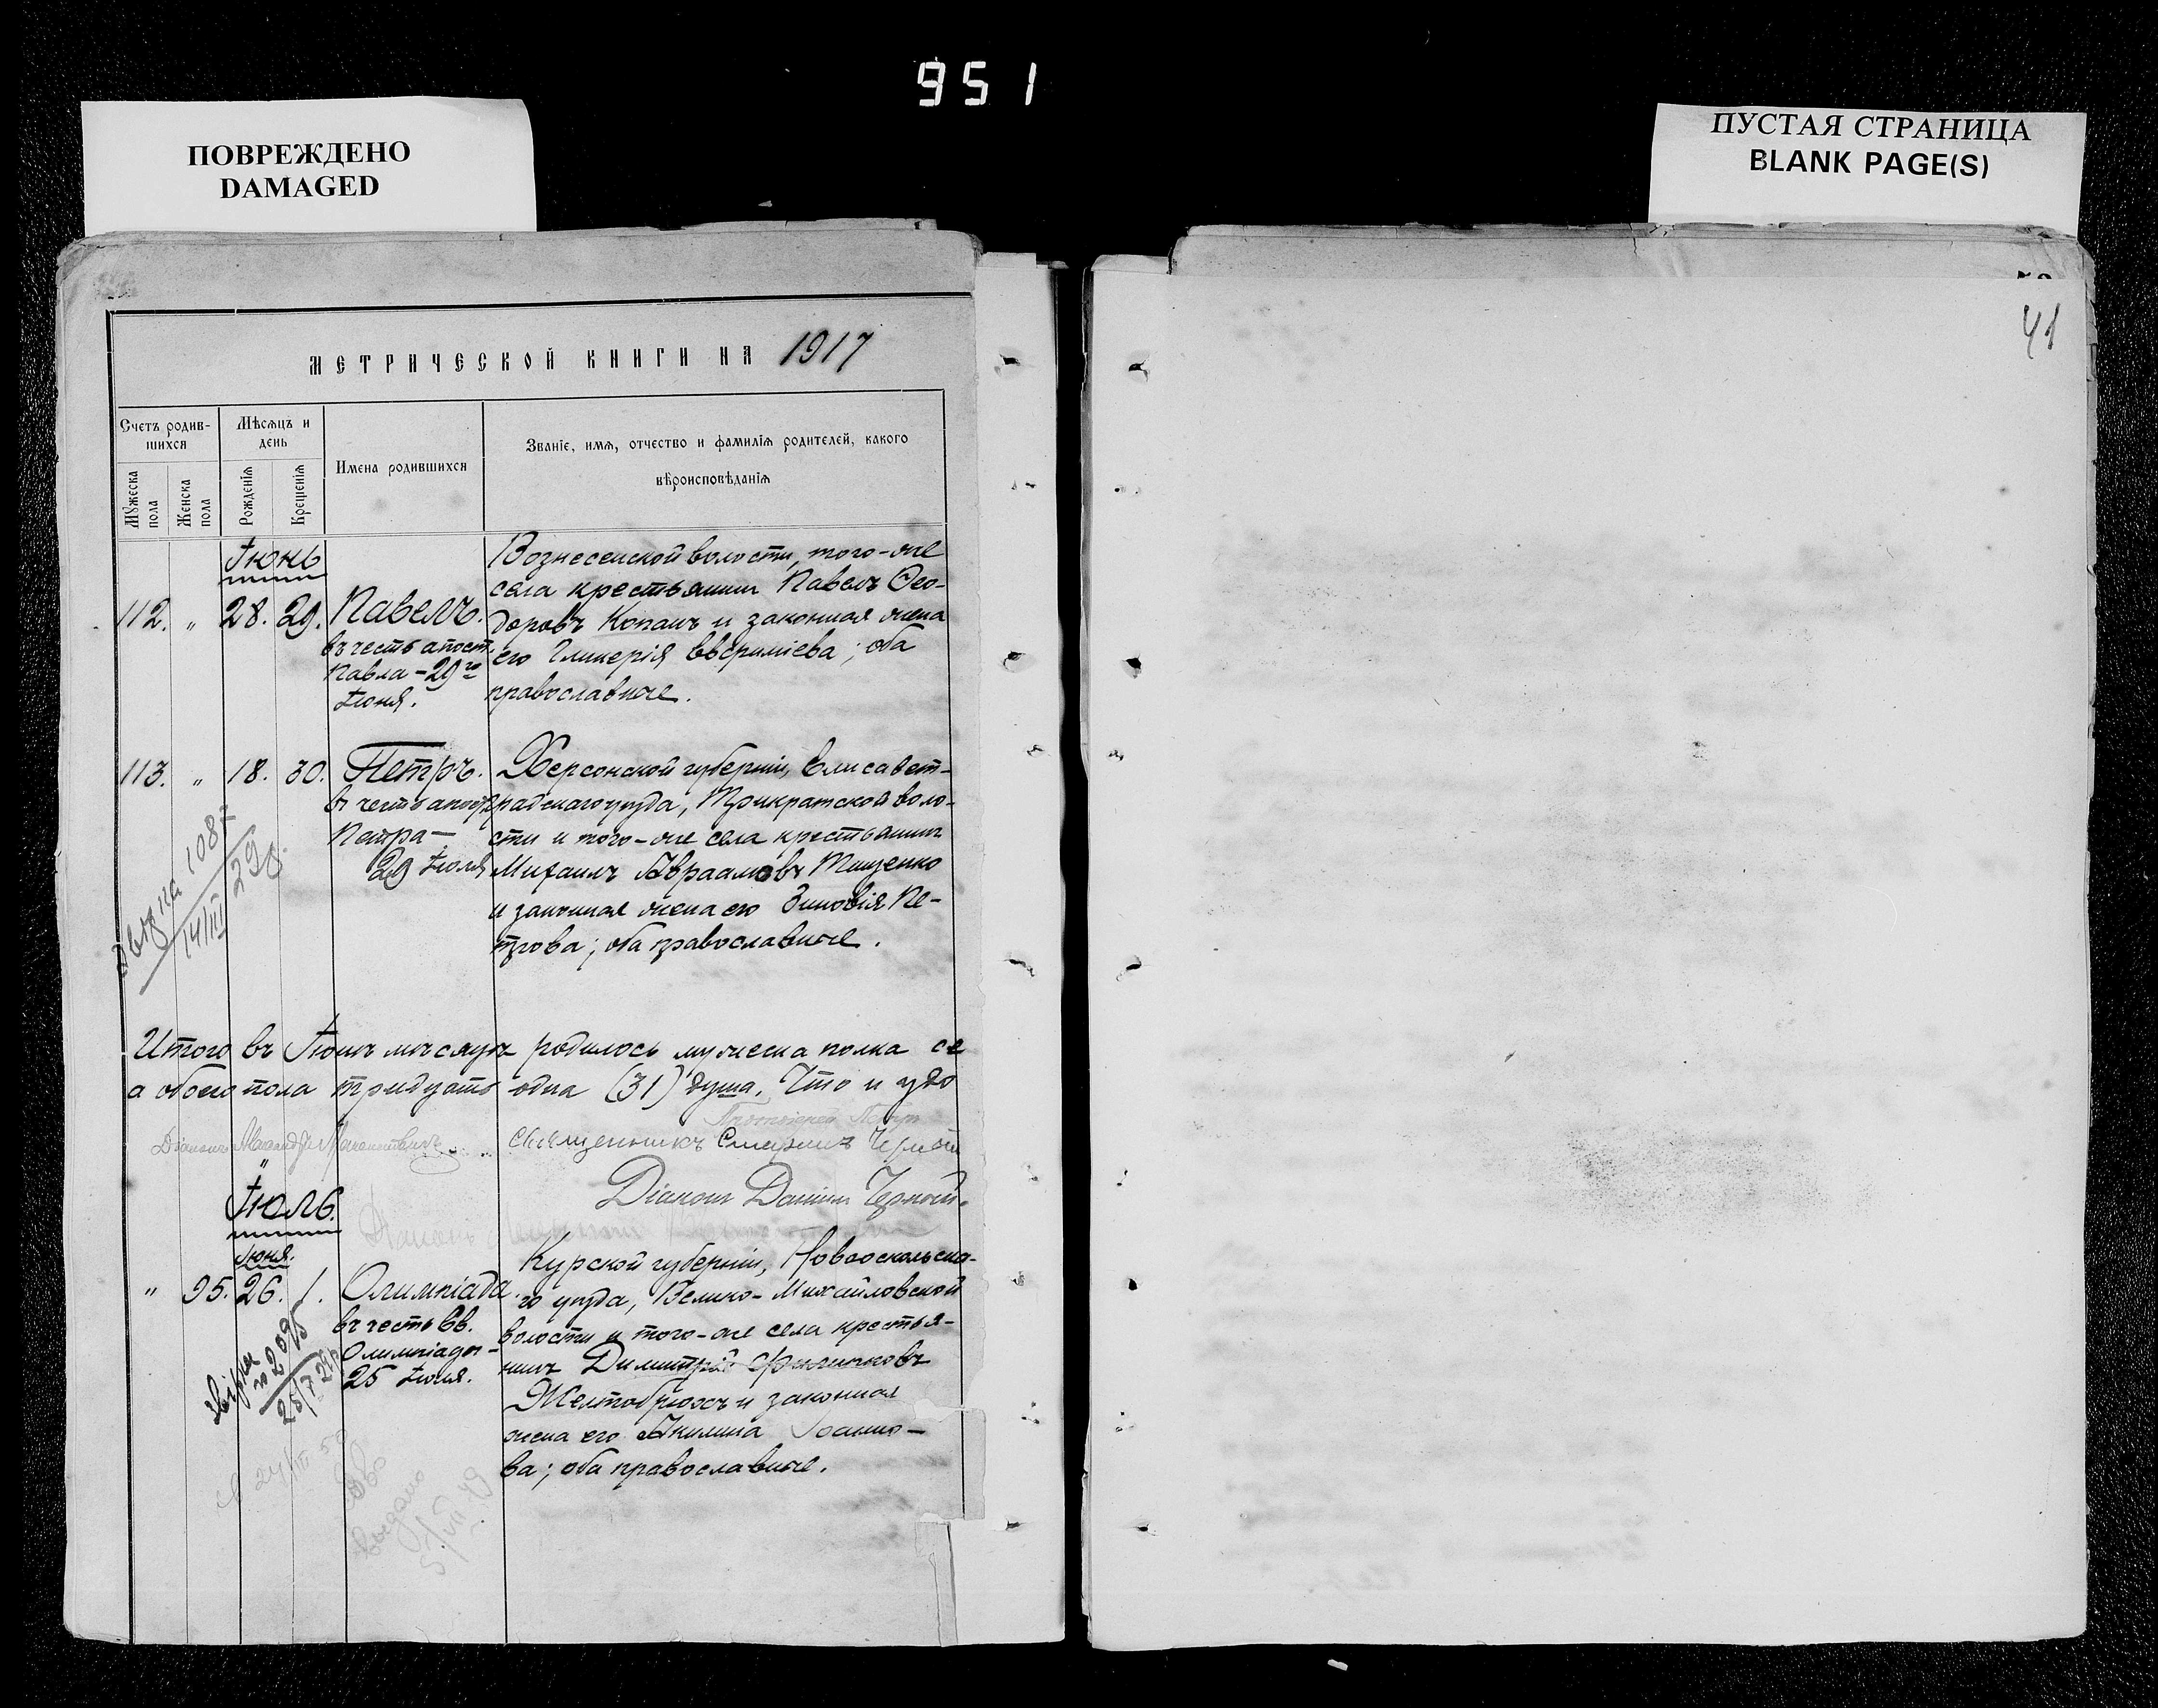 951
ПОВРЕЖДЕНО
DAMAGED
ПУСТАЯ СТРАНИЦА
BLANK PAGE(S)
41
МЕТРИЧЕСКОЙ КНИГИ НА 1917
Счетъ родив-
шихся
Мѣсяцъ и
день
Имена родившихся
Званіе, имя, отчество и фамилія родителей, какого
вѣроисповѣданія
Мужеска
пола
Женска
пола
Рожденія
Крещенія
Іюнь
112. " 28. 29. Павелъ.
въ честь апост.
Павла - 29го
Іюня.
Вознесенской волости, того-же
села крестьянин Павелъ Ѳео-
доровъ Копанъ и законная жена
его Гликерія Евфиміева; оба
православные.
113. " 18. 30. Петръ.
въ честь апост.
Петра -
29 Іюня
Херсонской губерніи, Елисавет-
радскаго уѣзда, Трикратской воло-
сти и того-же села крестьянинъ
Михаилъ Авраамовъ Тищенко
и законная жена его Зиновія Пе-
трова; оба православные.
1087
14/III 29
Итого въ Іюнѣ мѣсяцѣ родилось мужеска полка се
а обоего пола тридцать одна (31) душа. Что и удо
Протоіерей Петръ
Діаконъ
Священникъ Смарагдъ Черный
Діаконъ Даніилъ Черный.
Іюль.
Іюня.
" 95. 26. 1. Олимпіада.
въ честь Св.
Олимпіады -
25 Іюля.
Курской губерніи, Новооскольска-
го уѣзда, Велико-Михайловской
волости и того-же села крестья-
нинъ Димитрій
Желтобрюхъ и законная
жена его Акилина Іоанно-
ва; оба православные.
2095
25/V 29
24/III
выдано
5/VII 49